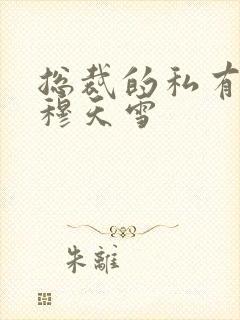 总裁的私有
穆天雪
朱離